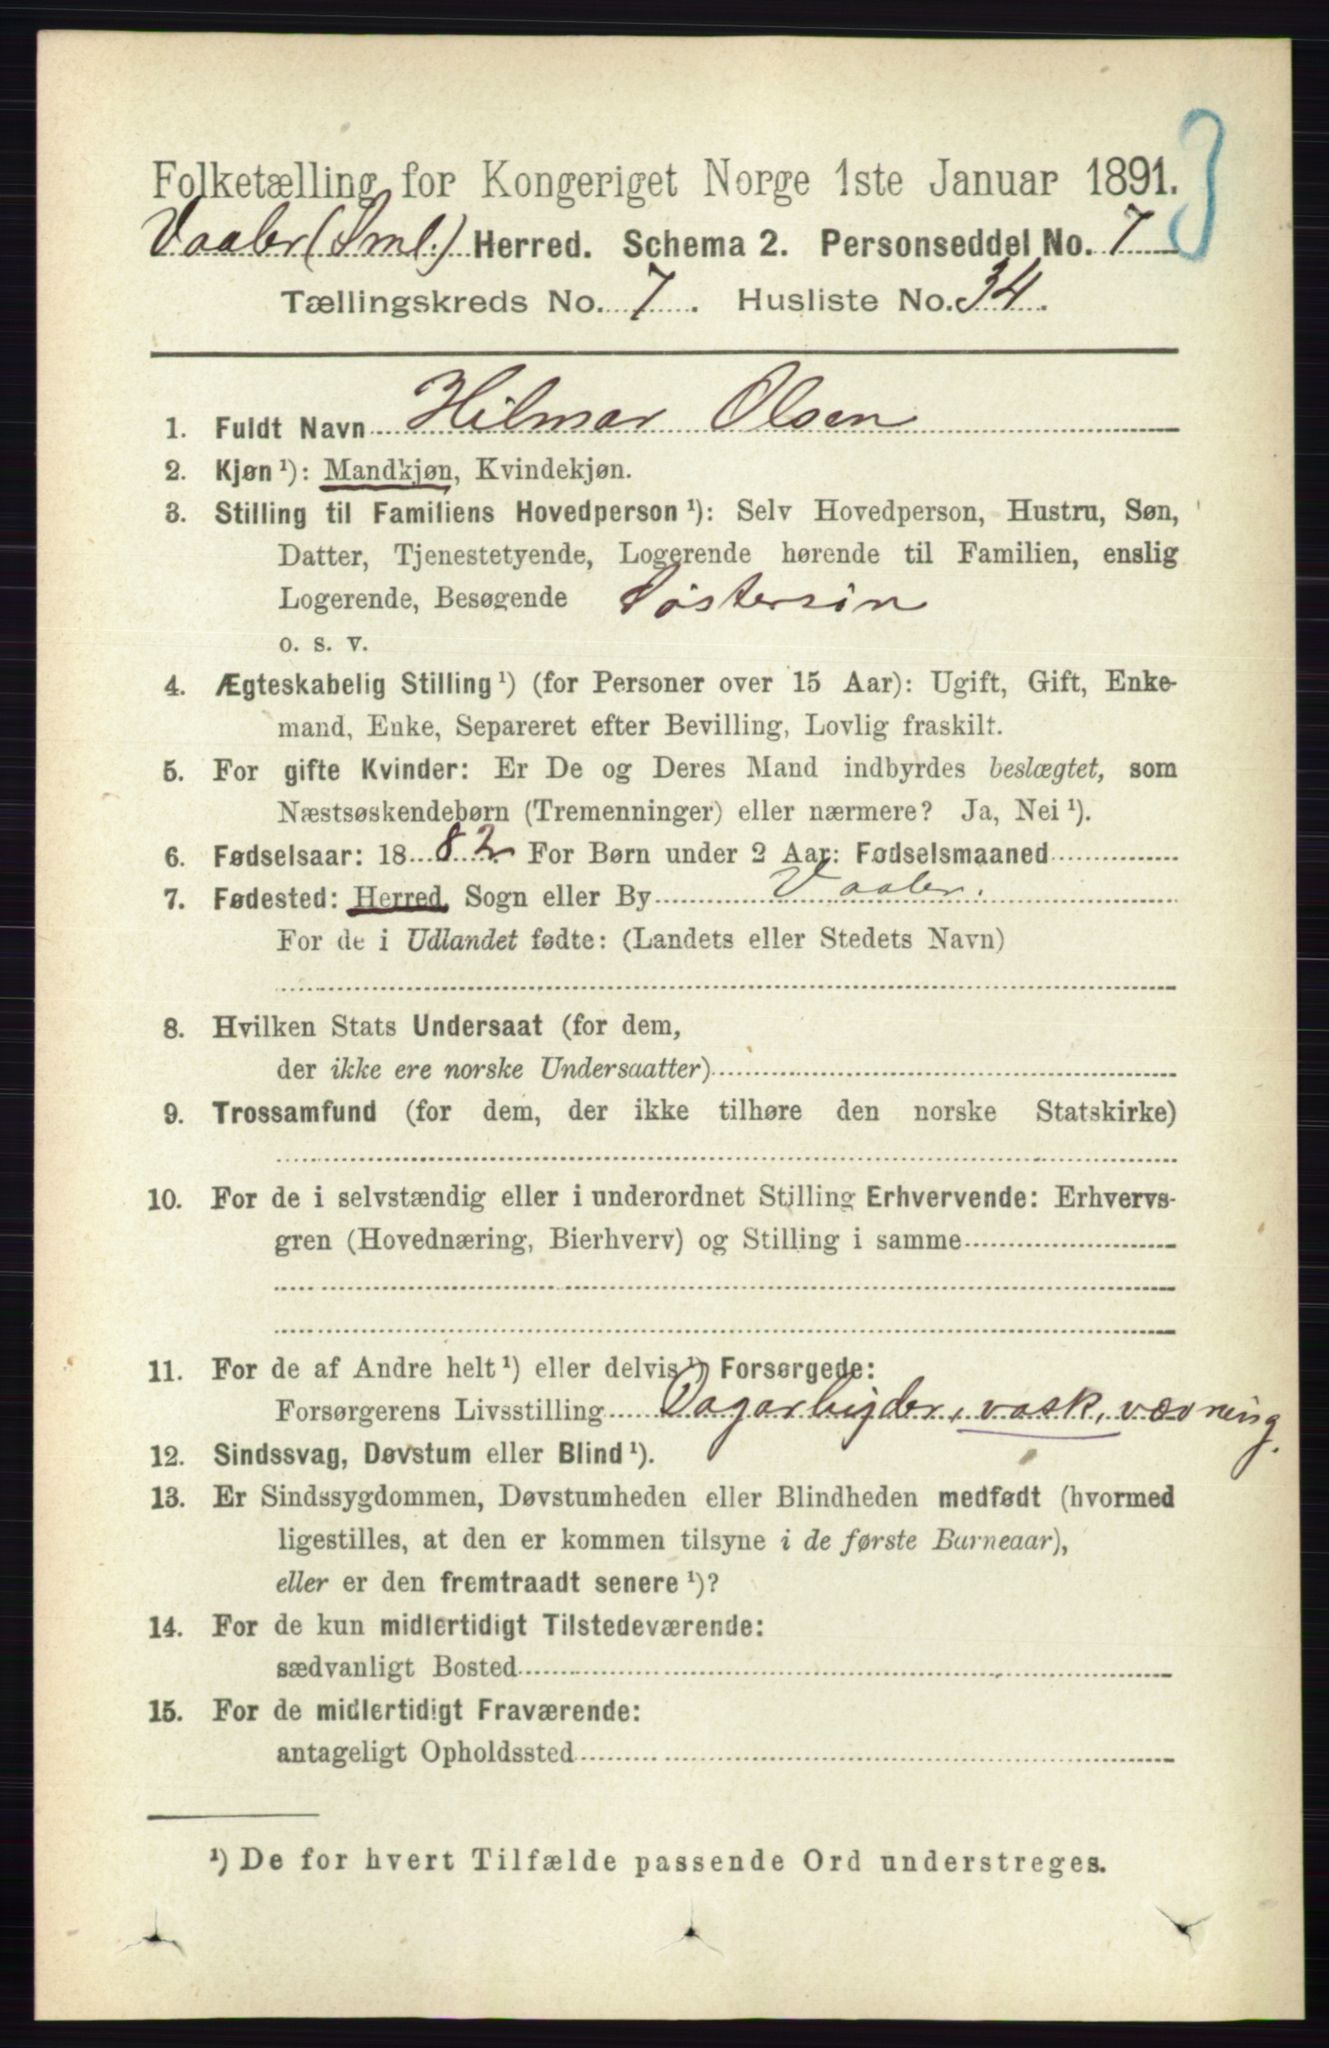 3
Folketælling for Kongeriget Norge 1ste Januar 1891.
Vaaler (Sml.) Herred. Schema 2. Personseddel No. 7
Tællingskreds No. 7. Husliste No. 34.
1. Fuldt Navn Hilmar Olsen
2. Kjøn ¹): Mandkjøn, Kvindekjøn.
3. Stilling til Familiens Hovedperson ¹): Selv Hovedperson, Hustru, Søn,
Datter, Tjenestetyende, Logerende hørende til Familien, enslig
Logerende, Besøgende Søstersøn
o. s. v.
4. Ægteskabelig Stilling ¹) (for Personer over 15 Aar): Ugift, Gift, Enke-
mand, Enke, Separeret efter Bevilling, Lovlig fraskilt.
5. For gifte Kvinder: Er De og Deres Mand indbyrdes beslægtet, som
Næstsøskendebørn (Tremenninger) eller nærmere? Ja, Nei ¹).
6. Fødselsaar: 1882 For Børn under 2 Aar: Fødselsmaaned
7. Fødested: Herred, Sogn eller By Vaaler.
For de i Udlandet fødte: (Landets eller Stedets Navn)
8. Hvilken Stats Undersaat (for dem,
der ikke ere norske Undersaatter)
9. Trossamfund (for dem, der ikke tilhøre den norske Statskirke)
10. For de i selvstændig eller i underordnet Stilling Erhvervende: Erhvervs-
gren (Hovednæring, Bierhverv) og Stilling i samme
11. For de af Andre helt ¹) eller delvis ¹) Forsørgede:
Forsørgerens Livsstilling Dagarbijder, vask, vævning.
12. Sindssvag, Døvstum eller Blind ¹).
13. Er Sindssygdommen, Døvstumheden eller Blindheden medfødt (hvormed
ligestilles, at den er kommen tilsyne i de første Barneaar),
eller er den fremtraadt senere ¹)?
14. For de kun midlertidigt Tilstedeværende:
sædvanligt Bosted
15. For de midlertidigt Fraværende:
antageligt Opholdssted
¹) De for hvert Tilfælde passende Ord understreges.